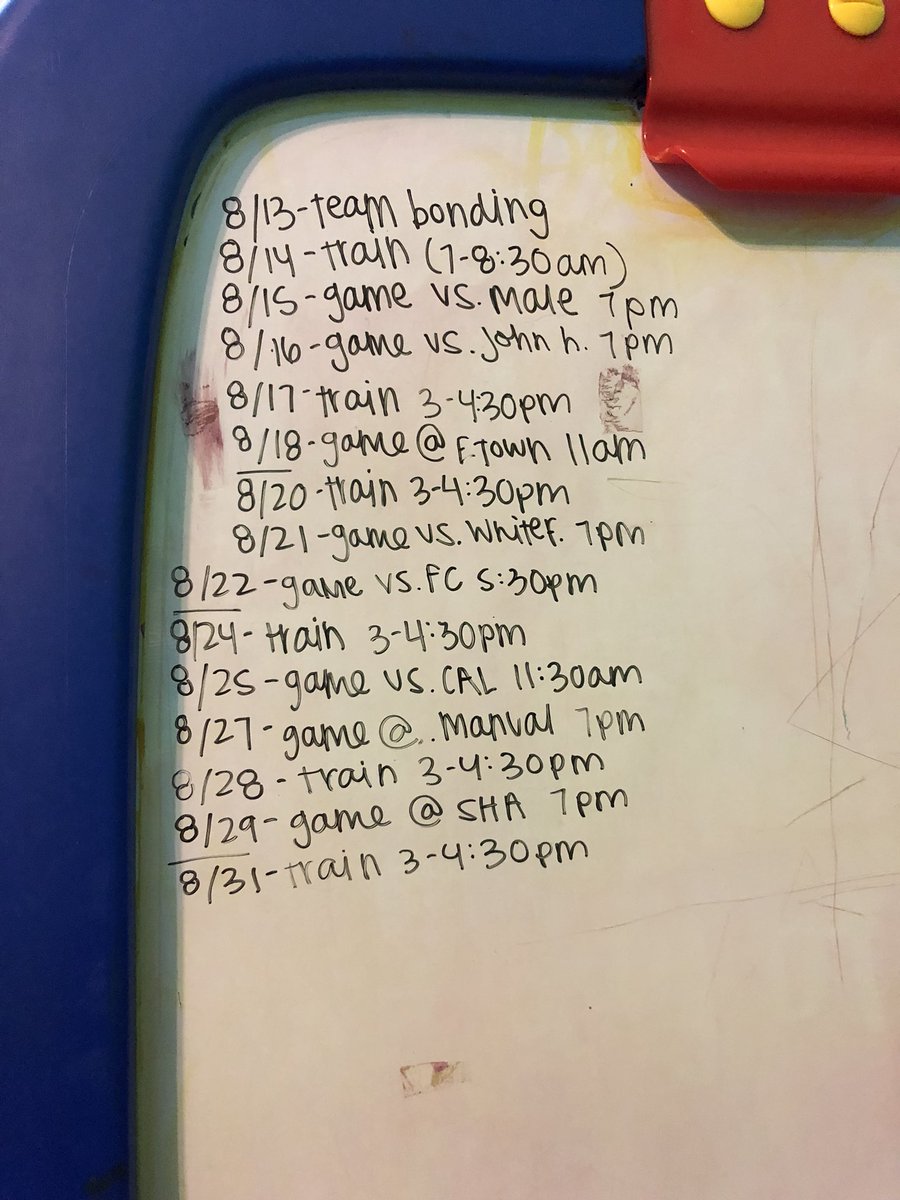 8/13-team bonding
8/14-train (7-8:30am)
8/15-game vs. Male 7pm
8/16-game vs. John h. 7pm
8/17-train 3-4:30pm
8/18-game @ E.Town 11am
8/20-train 3-4:30pm
8/21-game vs. WhiteF. 7pm
8/22-game vs. FC 5:30pm
8/24-train 3-4:30pm
8/25-game vs. CAL 11:30am
8/27-game @ Manual 7pm
8/28-train 3-4:30pm
8/29-game @ SHA 7pm
8/31-train 3-4:30pm